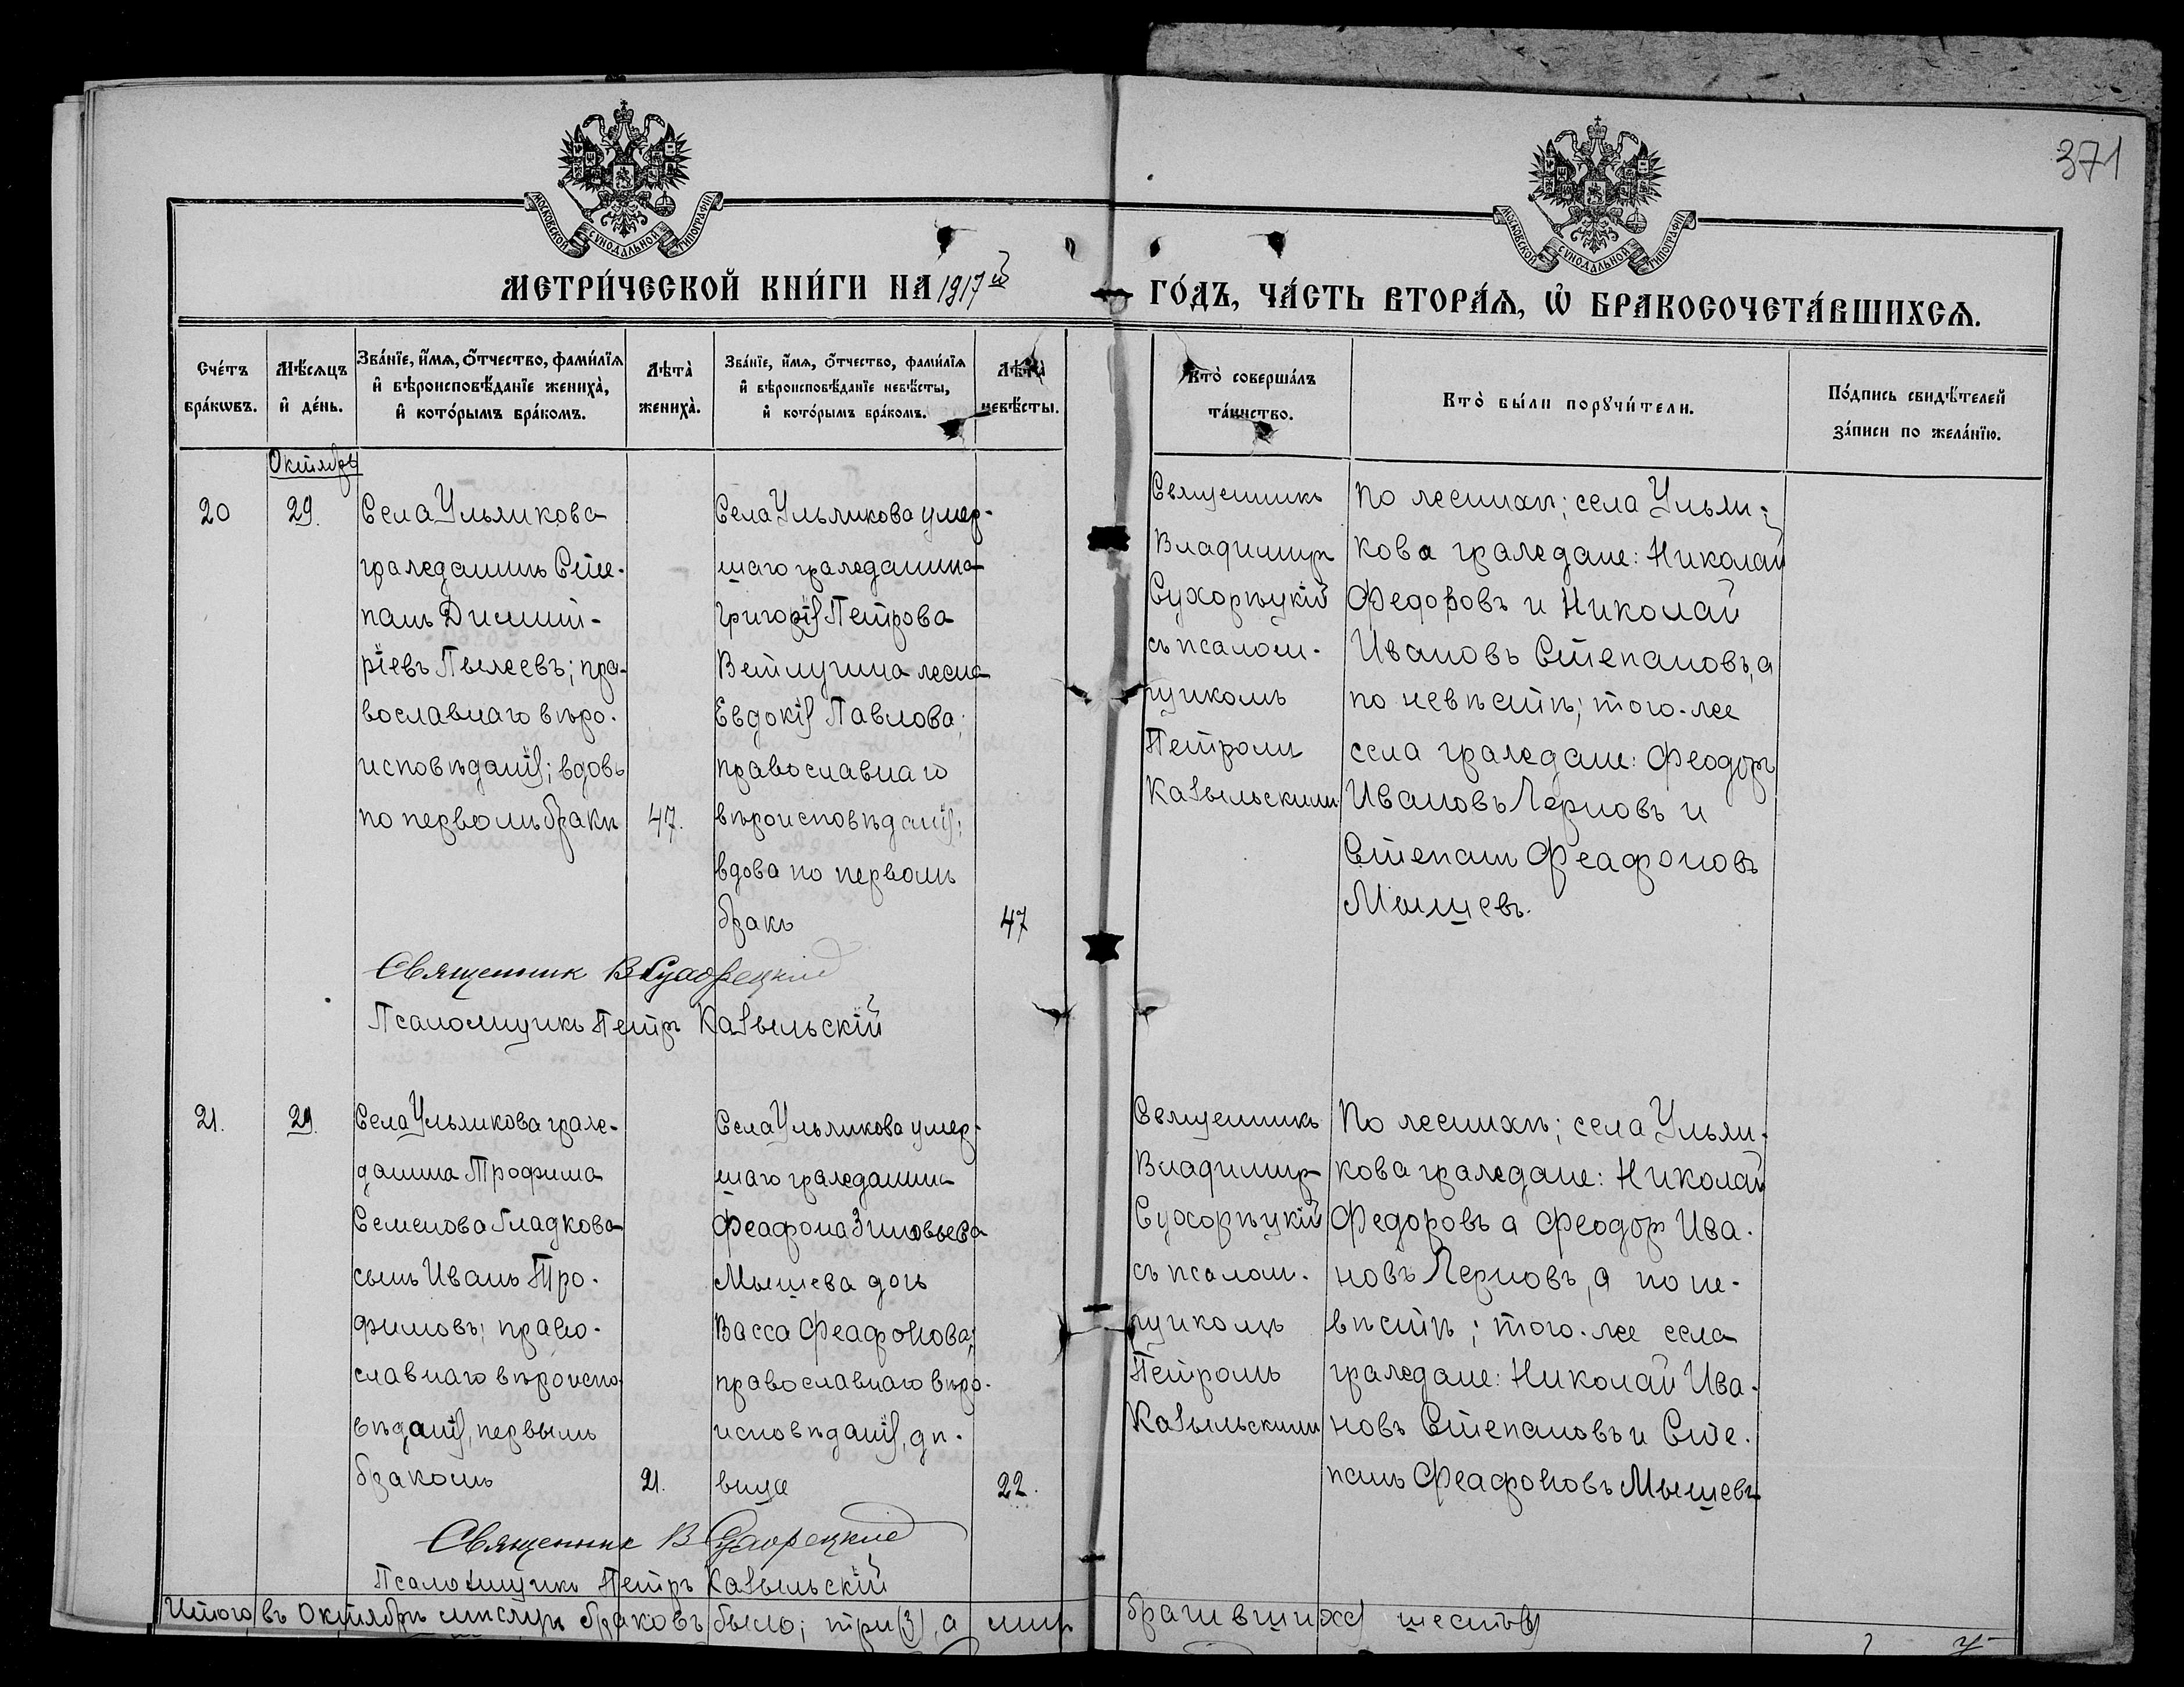 371
МОСКОВСКОЙ СѴНОДАЛЬНОЙ ТИПОГРАФІИ
МОСКОВСКОЙ СѴНОДАЛЬНОЙ ТИПОГРАФІИ
МЕТРИ́ЧЕСКОЙ КНИ́ГИ НА 1917й
ГО́ДЪ, ЧА́СТЬ ВТОРА́Ѧ, Ѡ҆ БРАКОСОЧЕТА́ВШИХСѦ.
Сче́тъ
бра́кѡвъ.
Мѣ́сяцъ
и҆ де́нь.
Зва́нїе, и҆́мѧ, ѻ҆́тчество, фами́лїѧ
и҆ вѣроисповѣ́данїе жениха̀,
и҆ кото́рымъ бра́комъ.
Лѣта̀
жениха̀.
Зва́нїе, и҆́мѧ, ѻ҆́тчество, фами́лїѧ
и҆ вѣроисповѣ́данїе невѣ́сты,
и҆ кото́рымъ бра́комъ.
Лѣта̀
невѣ́сты.
Кто̀ соверша́лъ
та́инство.
Кто̀ бы́ли порꙋчи́тели.
По́дпись свидѣ́телей
за́писи по жела́нїю.
Октябрь
20
29.
Села Ульянкова
гражданинъ Сте-
панъ Димит-
ріевъ Пылеевъ; пра-
вославнаго вѣро-
исповѣданія; вдовъ
по первомъ бракѣ
47.
Села Ульянкова умер-
шаго гражданина
Григорія Петрова
Ветлугина жена
Евдокія Павлова;
православнаго
вѣроисповѣданія;
вдова по первомъ
бракѣ
47
Священникъ
Владимиръ
Сухорѣцкій
съ псалом-
щикомъ
Петромъ
Казыльскимъ
По женихѣ; села Ульян-
кова граждане: Николай
Федоровъ и Николай
Ивановъ Степановъ, а
по невѣстѣ; того-же
села граждане: Феодоръ
Ивановъ Черновъ и
Степанъ Феафоновъ
Мышевъ.
Священник В Сухорецкий
Псаломщикъ Петръ Казыльскій
21.
29.
Села Ульянкова граж-
данина Трофима
Семенова Гладкова
сынъ Иванъ Тро-
фимовъ; право-
славнаго вѣроиспо-
вѣданія, первымъ
бракомъ
21.
Села Ульянкова умер-
шаго гражданина
Феафона Зиновьева
Мышева дочь
Васса Феафонова;
православнаго вѣро-
исповѣданія, дѣ-
вица
22.
Священникъ
Владимиръ
Сухорѣцкій
съ псалом-
щикомъ
Петромъ
Казыльскимъ
По женихѣ; села Ульян-
кова граждане: Николай
Федоровъ а Феодоръ Ива-
новъ Черновъ, а по не-
вѣстѣ; того-же села
граждане: Николай Ива-
новъ Степановъ и Сте-
панъ Феафоновъ Мышевъ
Священник В Сухорецкий
Псаломщикъ Петръ Казыльскій
Итого въ Октябрѣ мѣсяцѣ браковъ было; три (3), а
брачившихся шесть